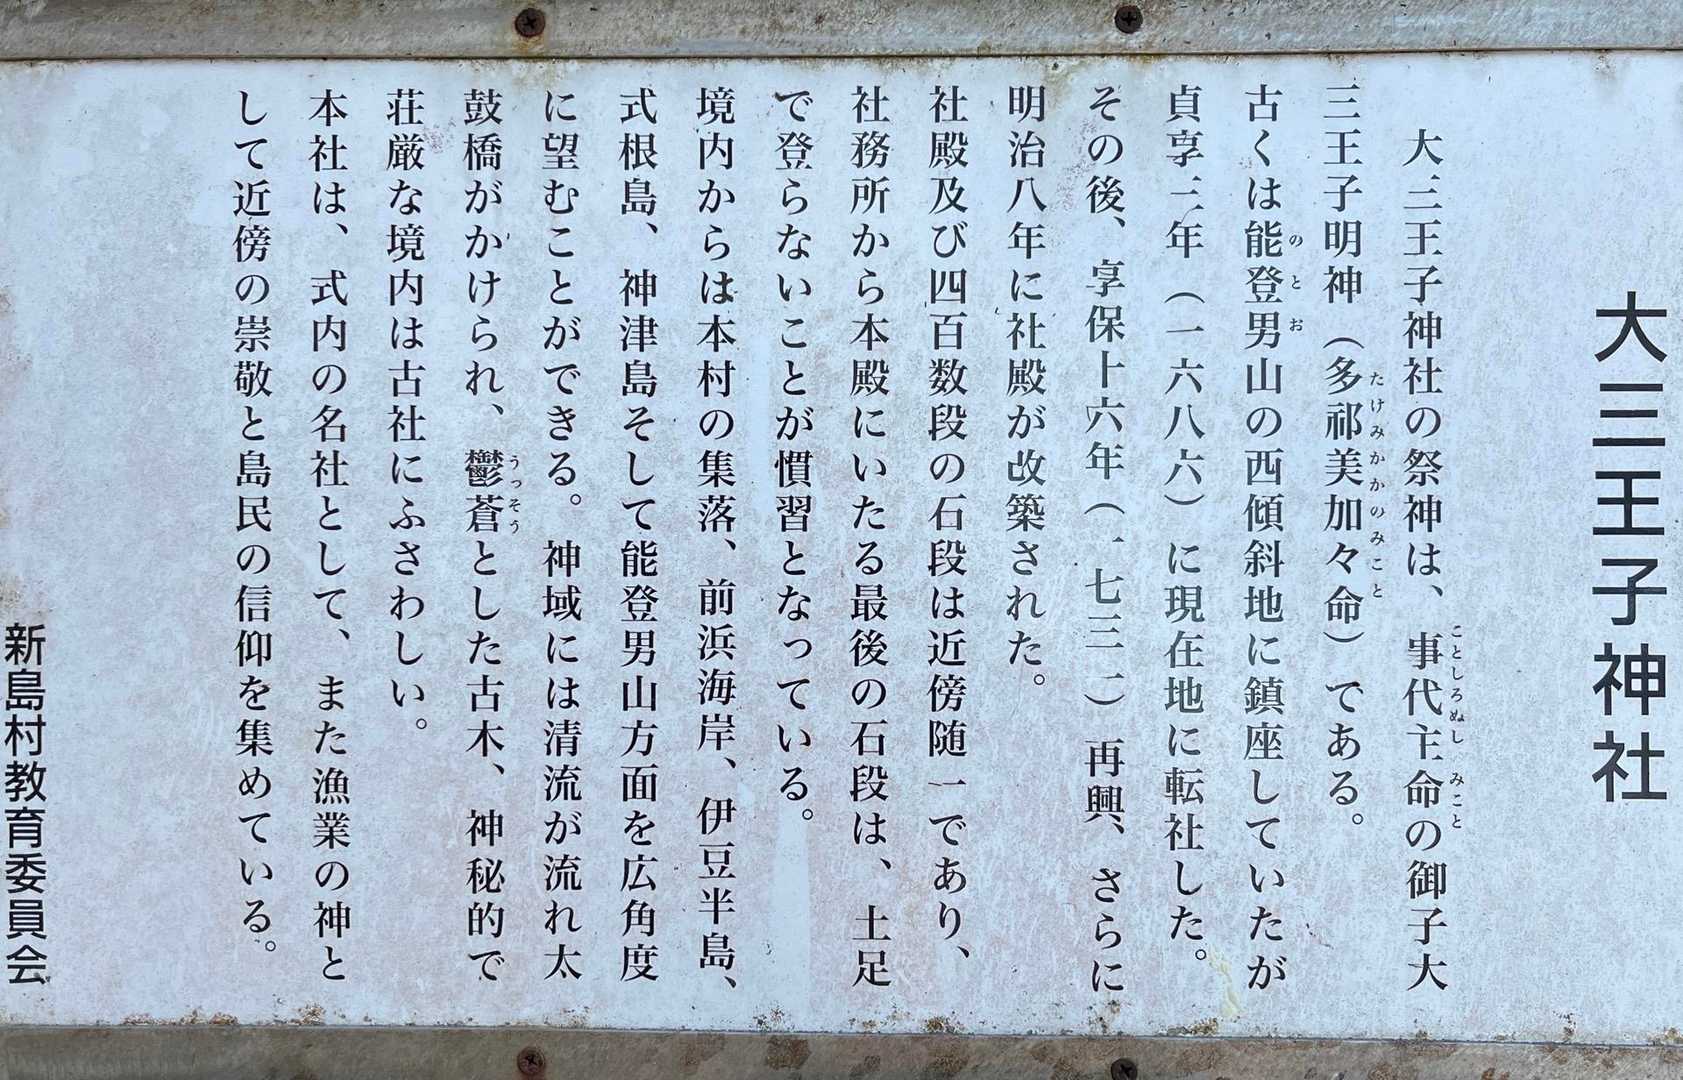 大三王子神社
大三王子神社の祭神は、事代主命の御子大
三王子明神（多祁美加々命）である。
古くは能登男山の西傾斜地に鎮座していたが
貞享三年（一六八六）に現在地に転社した。
その後、享保十六年（一七三一）再興、さらに
明治八年に社殿が改築された。
社殿及び四百数段の石段は近傍随一であり、
社務所から本殿にいたる最後の石段は、土足
で登らないことが慣習となっている。
境内からは本村の集落、前浜海岸、伊豆半島、
式根島、神津島そして能登男山方面を広角度
に望むことができる。神域には清流が流れ太
鼓橋がかけられ、鬱蒼とした古木、神秘的で
荘厳な境内は古社にふさわしい。
本社は、式内の名社として、また漁業の神と
して近傍の崇敬と島民の信仰を集めている。
新島村教育委員会
ことしろぬし みこと
たけみかかのみこと
のとお
うっそう